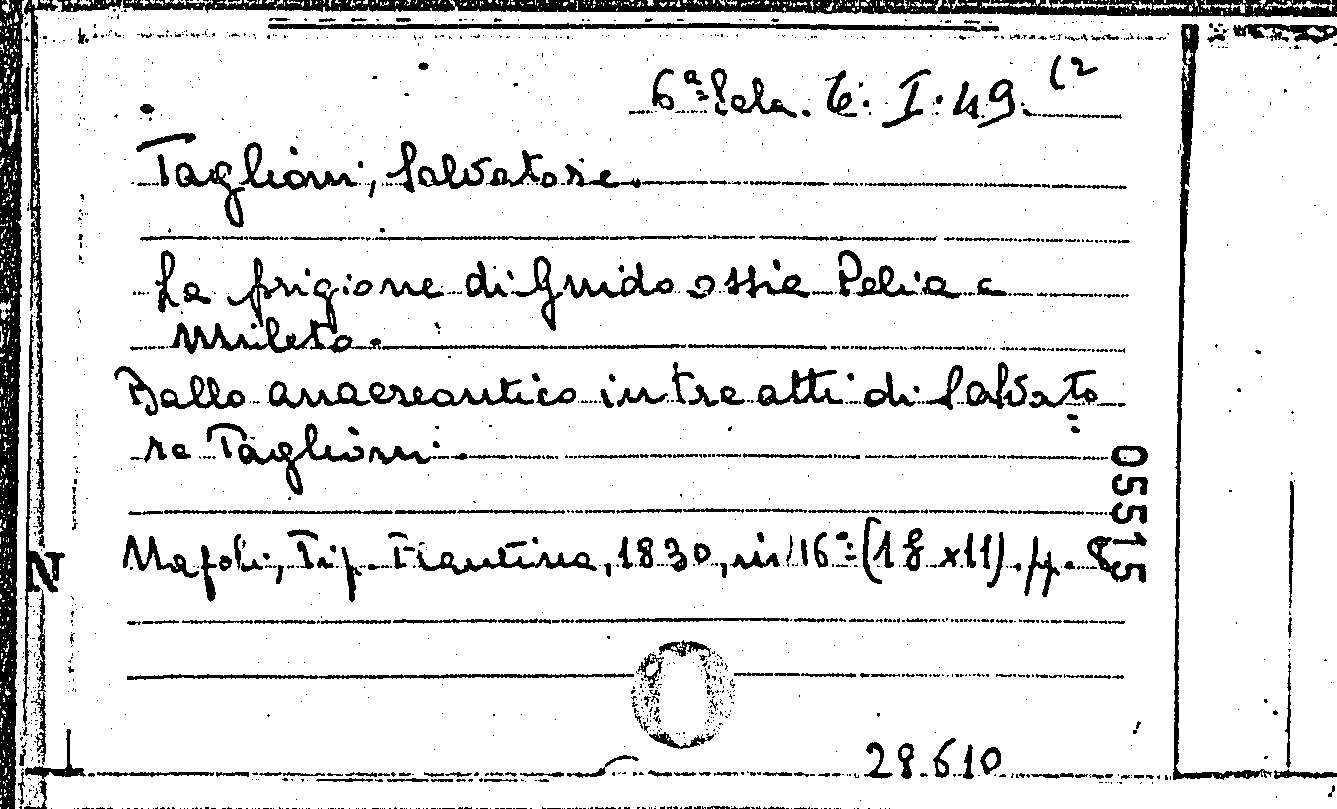 6ª Sala. C. I. 49. (2
Taglioni, Salvatore.
La prigione di Gnido ossia Pelia a
Mileto.
Ballo anacreontico in tre atti di Salvato=
re Taglioni.
Napoli, Tip. Flautina, 1830, in 16º (18 x 11). pp. 8
05515
N
28610